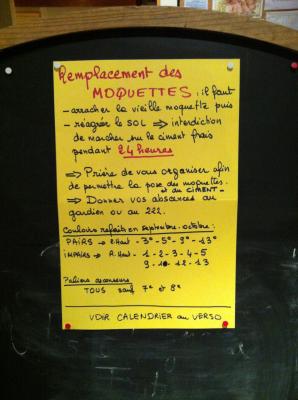 Remplacement des
MOQUETTES : il faut
- arracher la vieille moquette puis
- réagréer le SOL ⇒ interdiction
de marcher sur le ciment frais
pendant 24 heures
⇒ Prière de vous organiser afin
de permettre la pose des moquettes.
et du CIMENT
⇒ Donner vos absences au
gardien ou au 222.
Couloirs refaits en septembre-octobre :
PAIRS → - 3° - 5° - 9° - 13°
IMPAIRS → - 1 - 2 - 3 - 4 - 5
9 - 10 - 12 - 13
Paliers ascenseurs
TOUS sauf 7e et 8e
VOIR CALENDRIER au VERSO